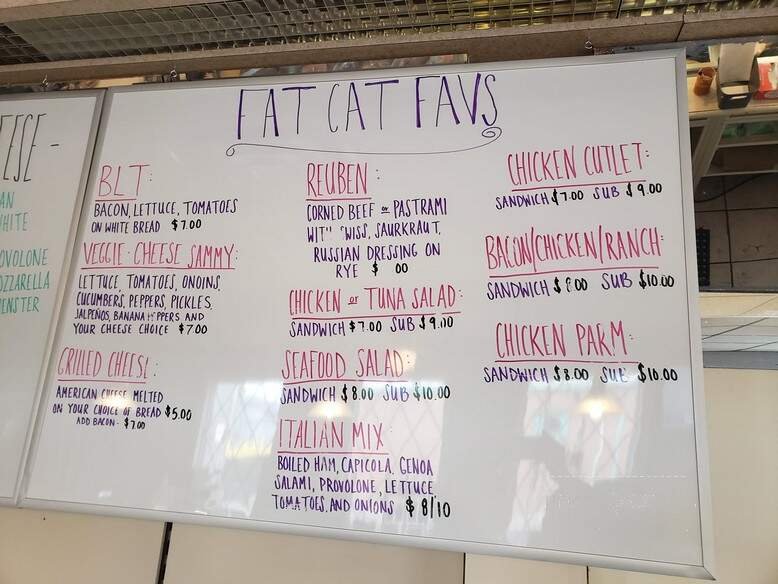 ESE -
AN
HITE
OVOLONE
OZZARELLA
ENSTER
FAT CAT FAVS
BLT:
BACON, LETTUCE, TOMATOES
ON WHITE BREAD $7.00
VEGGIE · CHEESE SAMMY:
LETTUCE, TOMATOES, ONOINS,
CUCUMBERS, PEPPERS, PICKLES,
JALPEÑOS, BANANA PEPPERS AND
YOUR CHEESE CHOICE $7.00
GRILLED CHEESE:
AMERICAN CHEESE MELTED
ON YOUR CHOICE OF BREAD $5.00
ADD BACON - $7.00
REUBEN:
CORNED BEEF or PASTRAMI
WIT" SWISS, SAURKRAUT,
RUSSIAN DRESSING ON
RYE $ 00
CHICKEN or TUNA SALAD:
SANDWICH $7.00 SUB $9.00
SEAFOOD SALAD:
SANDWICH $8.00 SUB $10.00
ITALIAN MIX
BOILED HAM, CAPICOLA, GENOA
SALAMI, PROVOLONE, LETTUCE
TOMATOES, AND ONIONS $8/10
CHICKEN CUTLET:
SANDWICH $7.00 SUB $9.00
BACON/CHICKEN/RANCH:
SANDWICH $8.00 SUB $10.00
CHICKEN PARM:
SANDWICH $8.00 SUB $10.00